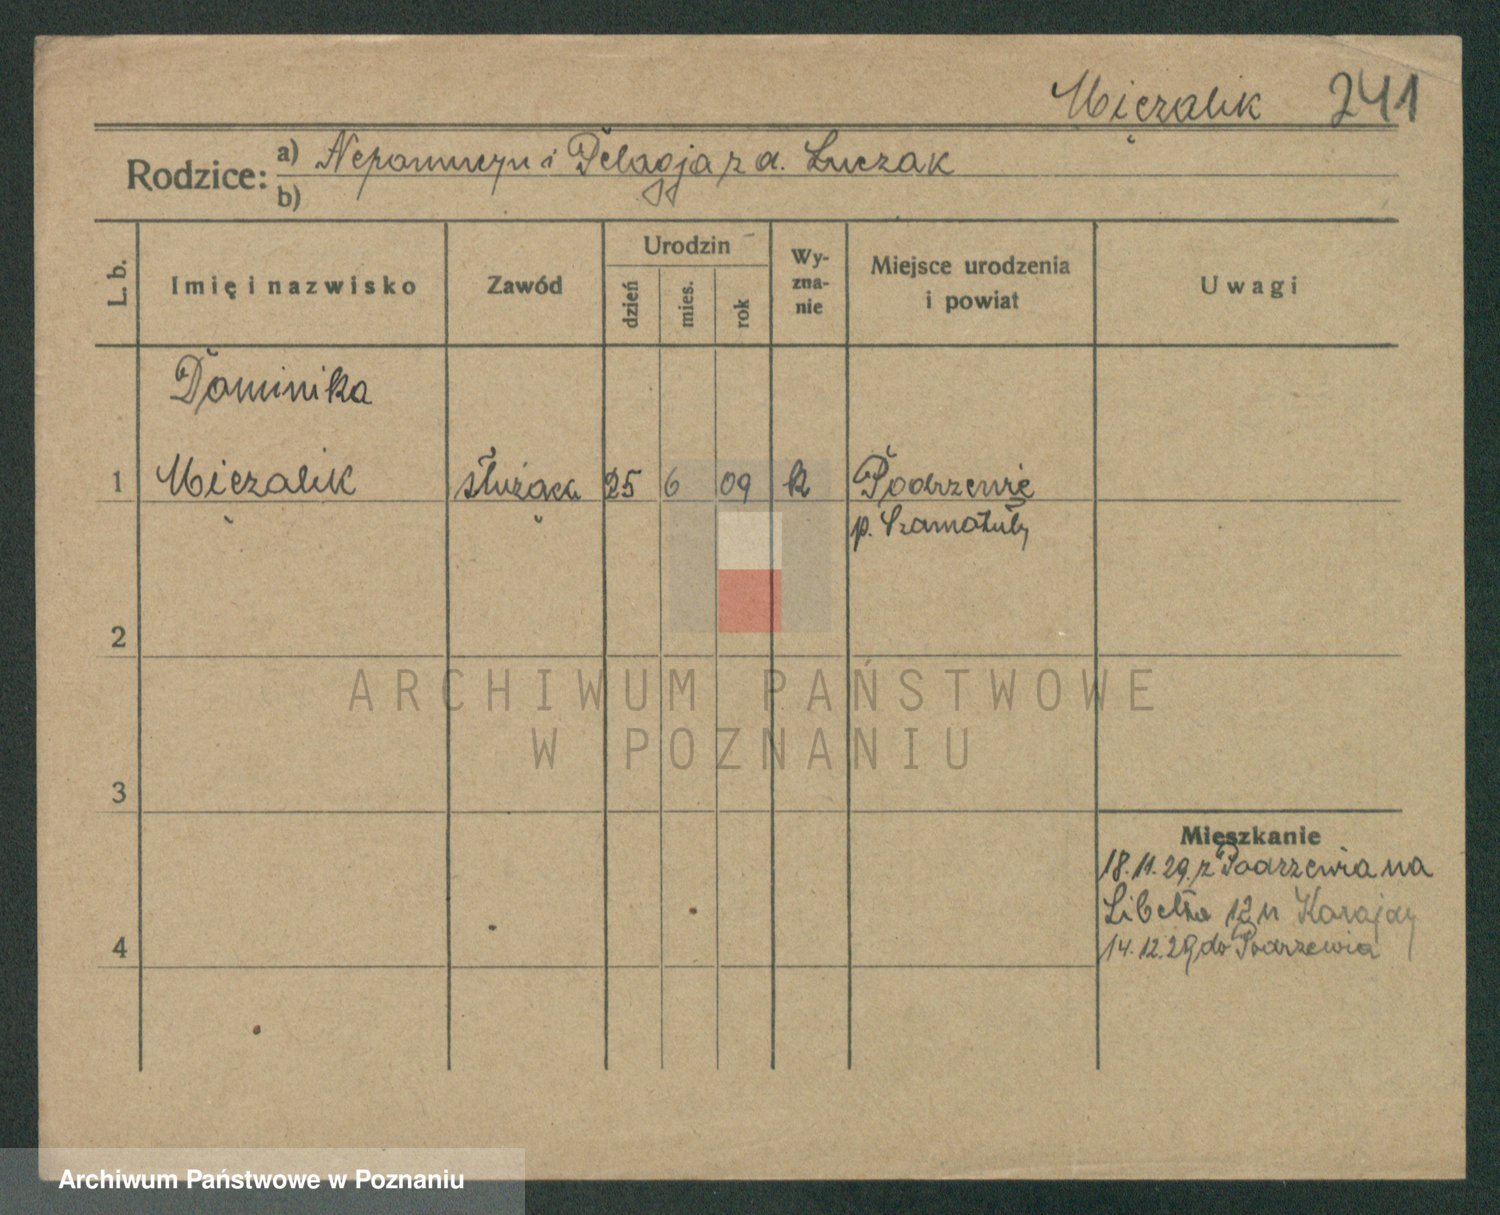 Mięzalik 241
Rodzice: a) Nepomucyn i Pelagja z d. Łuczak
b)
L. b. Imię i nazwisko Zawód Urodzin dzień mies. rok Wyznanie Miejsce urodzenia i powiat Uwagi
Dominika
1 Mięzalik służąca 25 6 09 k Podrzewie
p. Szamotuły
2
ARCHIWUM PAŃSTWOWE
W POZNANIU
3
Mieszkanie
18.11.29. z Podrzewia na
Libelta 12 u
14.12.29 do Podrzewia
4
Archiwum Państwowe w Poznaniu